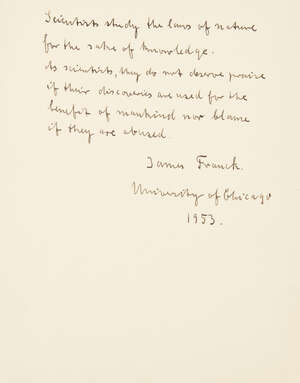 Scientists study the laws of nature
for the sake of knowledge.
As scientists, they do not deserve praise
if their discoveries are used for the
benefit of mankind nor blame
if they are abused.
James Franck.
University of Chicago
1953.